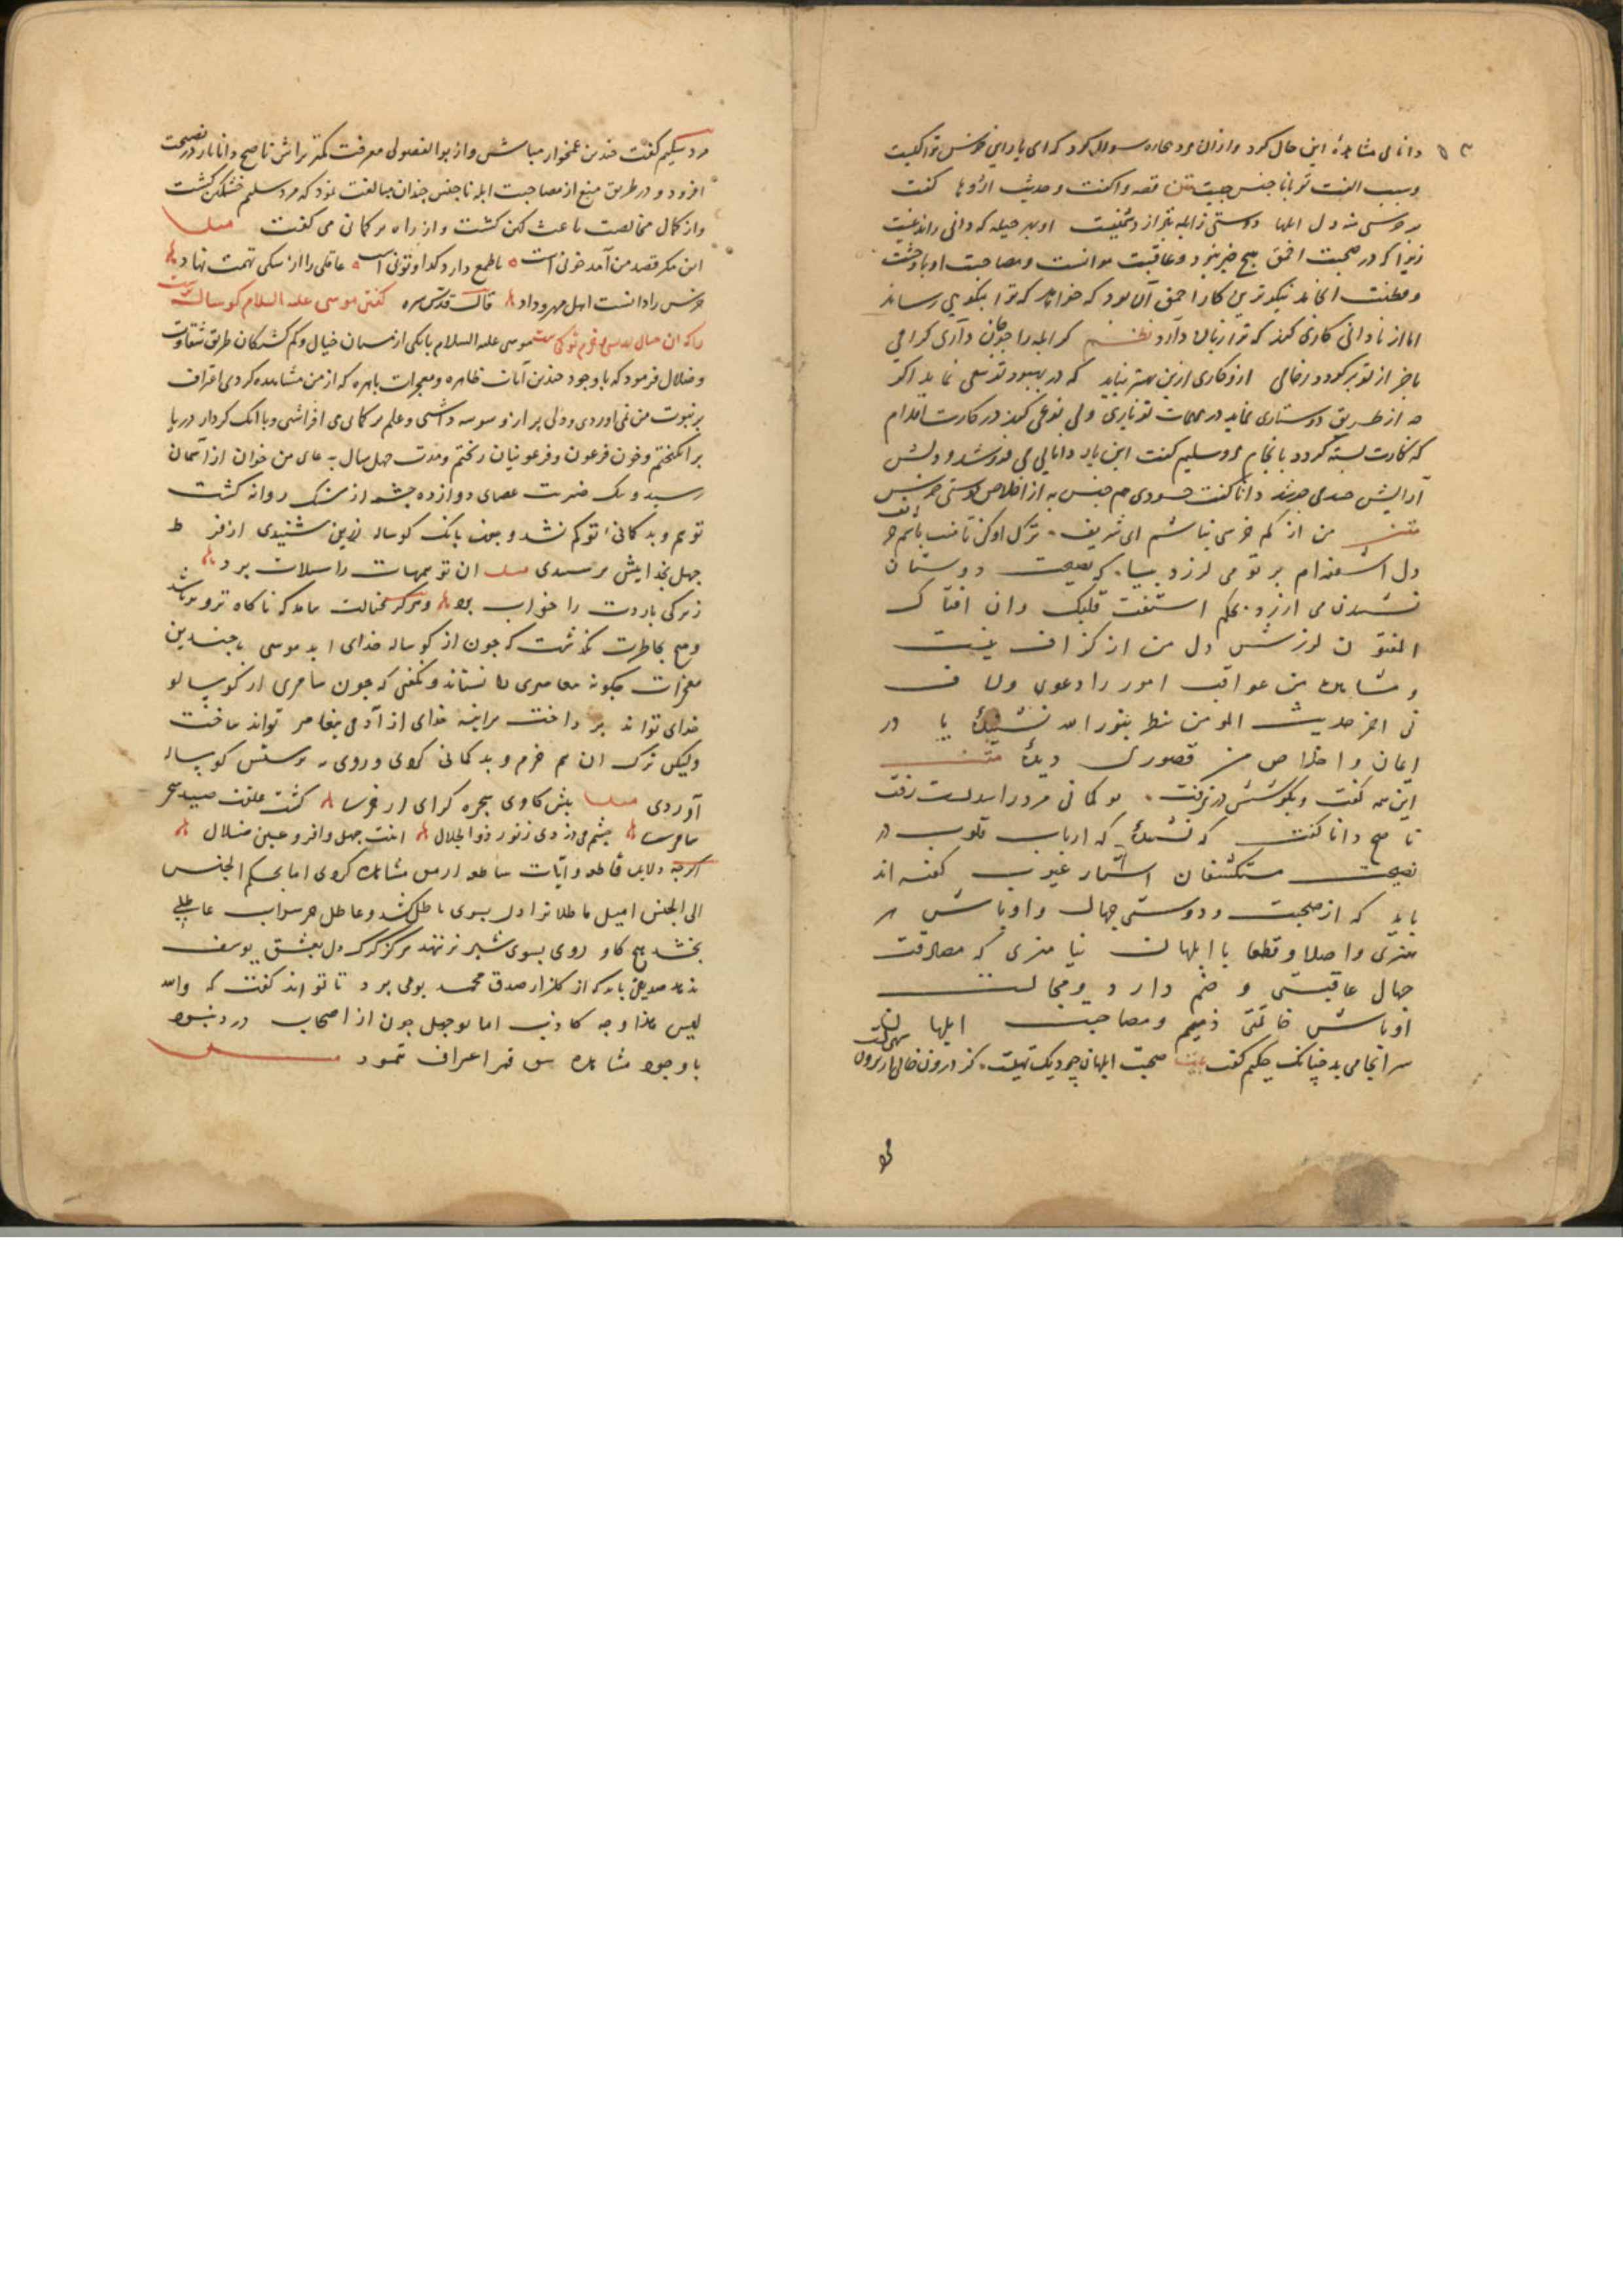 دانای مشاهدهٔ این حال کرد و ازان مرد سوال کرد که ای یار این خرس ترا کیست
و سبب الفت تو با ناجنس چیست متن قصه واگفت و حدیث اژدها گفت
بر خرسی منه دل ابلها دوستی ز ابله بتر از دشمنیست او بهر حیله که دانی راندنیست
زیرا که در صحبت احمق هیچ خیر نبود و عاقبت موانست و مصاحبت او با وحشت
نیکوترین کار احمق آن بود که خواهد که ترا نیکویی رساند
اما از نادانی کاری کند که ترا زیان دارد نظم گر ابله را چو جان داری گرامی
که در بهبود تو سعی نماید اگر
از طریق دوستاری نماید در مهمات تو ولی نوعی کند در کارت اقدام
که کارت بسته گردد بانجام مرد سلیم گفت این یار دانایی می فروشد و دلش
دانا گفت حسودی هم جنس به از اخلاص دوستی خرس
متن من از کم خرسی نباشم ای شریف ترک او کن تا منت باشم حریف
دل اندام بر تو می لرزد بیا که نصیحت دوستان
شنیدن می ارزد بحکم استفت قلبک وان افتاک
المفتون لرزش دل من از گزاف نیست
و مشاهده من عواقب امور را دعوی و لاف
نی اخر حدیث المومن ینظر بنور الله نشنیدهٔ یا در
ایمان و اخلاص من قصوری دیدهٔ متن
این همه گفت و بگوشش در نرفت بدگمانی مرد را سدیست زفت
ناصح دانا گفت که نشنیدهٔ که ارباب قلوب در
نصیحت مستکشفان اسرار غیوب گفته اند
باید که از صحبت و دوستی جهال و اوباش
و اصلا و قطعا با ابلهان نیامیزی که مصادقت
جهال عاقبتی وخیم دارد و مجالست
اوباش خاتمتی ذمیم و مصاحبت ابلها
سرانجامی بد چنانک حکیم گفت بیت صحبت ابلهان چو دیک تهیست کز درون خالی از برون سیهست
مرد سلیم گفت چندین غمخوار مباش و از بوالفضولی معرفت کمتر تراش ناصح دانا بار در نصیحت
افزود و در طریق منع از مصاحبت ابله ناجنس چندان مبالغت نمود که مرد سلیم خشمگین گشت
و از کمال مخالصت باعث کین گشت و از راه بدگمانی می گفت
این مگر قصد من آمد خونی است یا طمع دارد گدا و تونی است عاقلی را از سگی تهمت نهاد
خرس را دانست اهل مهر و داد قال قدس سره گفتن موسی علیه السلام گوساله پرست
را که ان خیال اندیشی و حزم تو کجاست موسی علیه السلام با یکی از مستان خیال و گم گشتگان طریق شقاوت
و ضلال فرمود که با وجود چندین آیات ظاهره و معجزات باهره که از من مشاهده کردی اعتراف
بر نبوت من نمی اوردی و دلی پر از وسوسه داشتی و علم بدگمانی می افراشتی و با انک گرد از دریا
برانگیختم و خون فرعون و فرعونیان ریختم و مدت چهل سال به دعای من خوان از آسمان
رسید و بیک ضربت عصای دوازده چشمه از سنگ روانه گشت
توهم و بدگمانیٔ تو کم نشد و بیک بانگ گوساله زرین شنیدی از فرط
جهل بخداییش پرستیدی ان توهمهات را سیلاب برد
زیرکی باردت را خواب برد و هرگز بخیالت نیامد که ناگاه تزویر باشد
و هیچ بخاطرت نگذشت که چون از گوساله خدای آید موسی با چندین
معجزات چگونه معاصری تا نستاند و نگفتی که چون سامری از گوساله
خدای تواند پرداخت هراینه خدای از آدمی پیغامبر تواند ساخت
ولیکن ترک ان هم حزم و بدگمانی کردی و روی بپرستش گوساله
آوردی پیش گاوی سجده کردی از خری گشت عقلت صید سحر
سامری چشم دزدیدی ز نور ذوالجلال اینت جهل وافر و عین ضلال
اگرچه دلایل قاطع و آیات ساطع از من مشاهده کردی اما بحکم الجنس
الی الجنس امیل باطل ترا دل بسوی باطل کشد و عاطل هر سراب
بخشد هیچ گاو روی بسوی شیر نر ننهد هرگز گرگ دل بعشق یوسف
ندهد صدیق باید که از گلزار صدق محمد بویی برد تا تواند گفت که والله
لیس هذا وجه کاذب اما بوجهل چون از اصحاب درد نبود
با وجود مشاهده شق قمر اعتراف ننمود